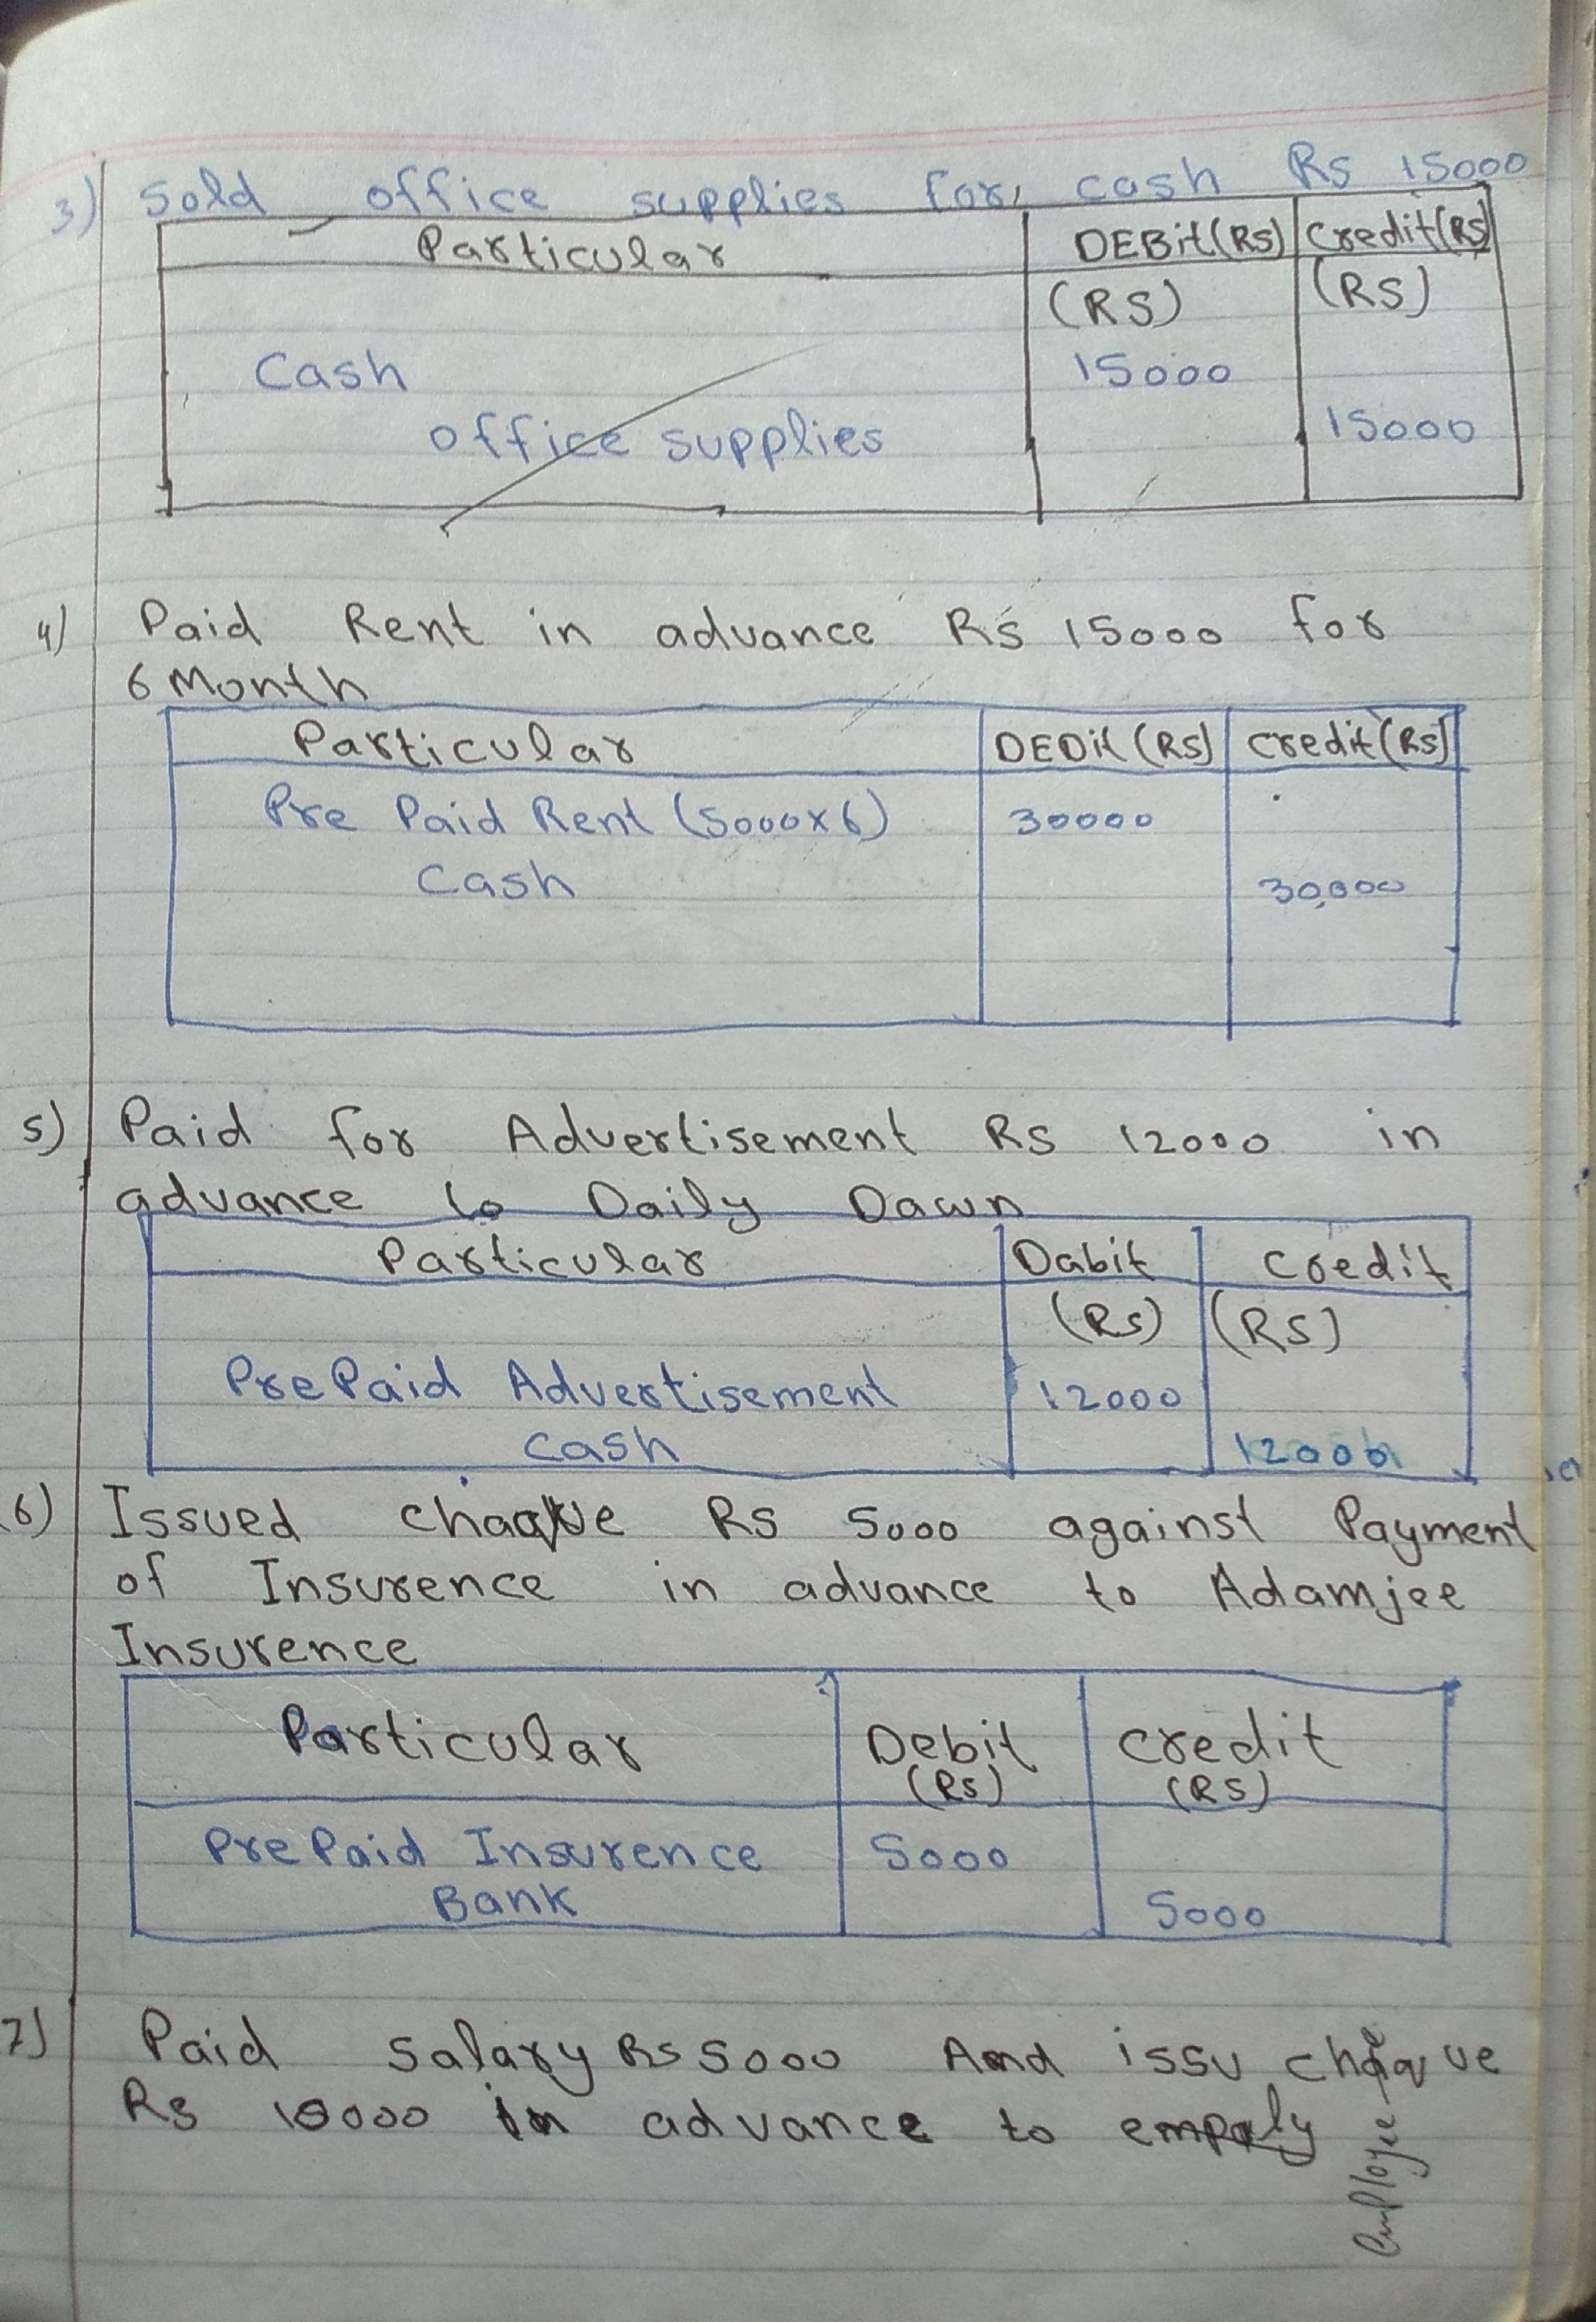 3) Sold office supplies for cash Rs 15000
Particular DEBit(RS) Credit(RS)
(RS) (RS)
Cash 15000
office supplies 15000
4) Paid Rent in advance Rs 15000 for
6 Month
Particular DEDit (RS) credit (RS)
Pre Paid Rent (5000x6) 30000
Cash 30,000
5) Paid for Advertisement Rs 12000 in
advance to Daily Dawn
Particular Dabit Credit
(Rs) (RS)
Pre Paid Advertisement 12000
Cash 12000
6) Issued Rs 5000 against Payment
of Insurence in advance to Adamjee
Insurence
Particular Debit credit
(Rs) (RS)
Pre Paid Insurence 5000
Bank 5000
7) Paid Salary Rs 5000 And issu
Rs 10000 in advance to
Employee